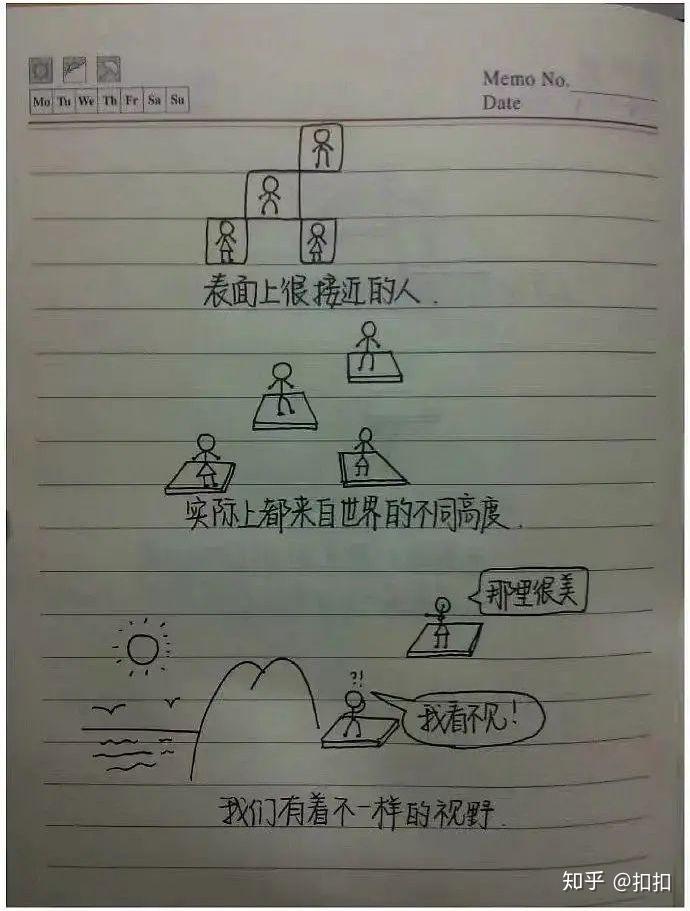 Memo No.
Date
Mo Tu We Th Fr Sa Su
表面上很接近的人.
实际上都来自世界的不同高度.
那里很美
?!
我看不见!
我们有着不一样的视野.
知乎 @扣扣